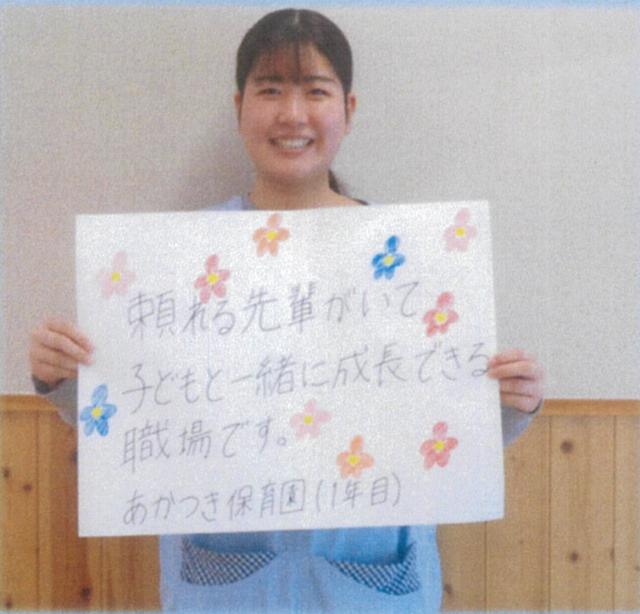 頼れる先輩がいて
子どもと一緒に成長できる
職場です。
あかつき保育園(1年目)